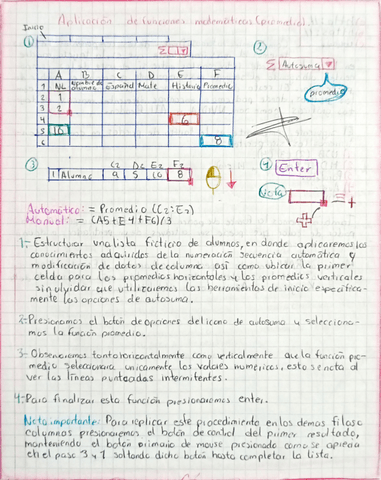 Aplicación de funciones matemáticas (promedio)
Inicio
1
Σ
2
Σ Autosuma
promedio
A B C D E F
1 NL Nombre de alumno español Mate Historia Promedio
2 1
3 2
4 6
5 10
6 8
3
C2 D2 E2 F2
1 Alumno 9 5 10 8
4 Enter
Automático: = Promedio (C2:E2)
Manual: = (A5+E4+F6)/3
1:- Estructurar una lista ficticia de alumnos, en donde aplicaremos los
conocimientos adquiridos de la numeración secuencia automática y
modificación de datos de columna así como ubicar la primer
celda para los promedios horizontales y los promedios verticales
sin olvidar que utilizaremos las herramientas de inicio específica-
mente las opciones de autosuma.
2:- Presionamos el botón de opciones del icono de autosuma y selecciona-
mos la función promedio.
3:- Observamos tanto horizontalmente como verticalmente que la función pro-
medio seleccionara unicamente los valores numericos, esto se nota al
ver las líneas punteadas intermitentes.
4:- Para finalizar esta función presionaremos enter.
Nota importante: Para replicar este procedimiento en las demas filas o
columnas presionaremos el botón de control del primer resultado,
manteniendo el botón primario de mouse presionado como se aprecia
en el paso 3 y 4 soltando dicho botón hasta completar la lista.